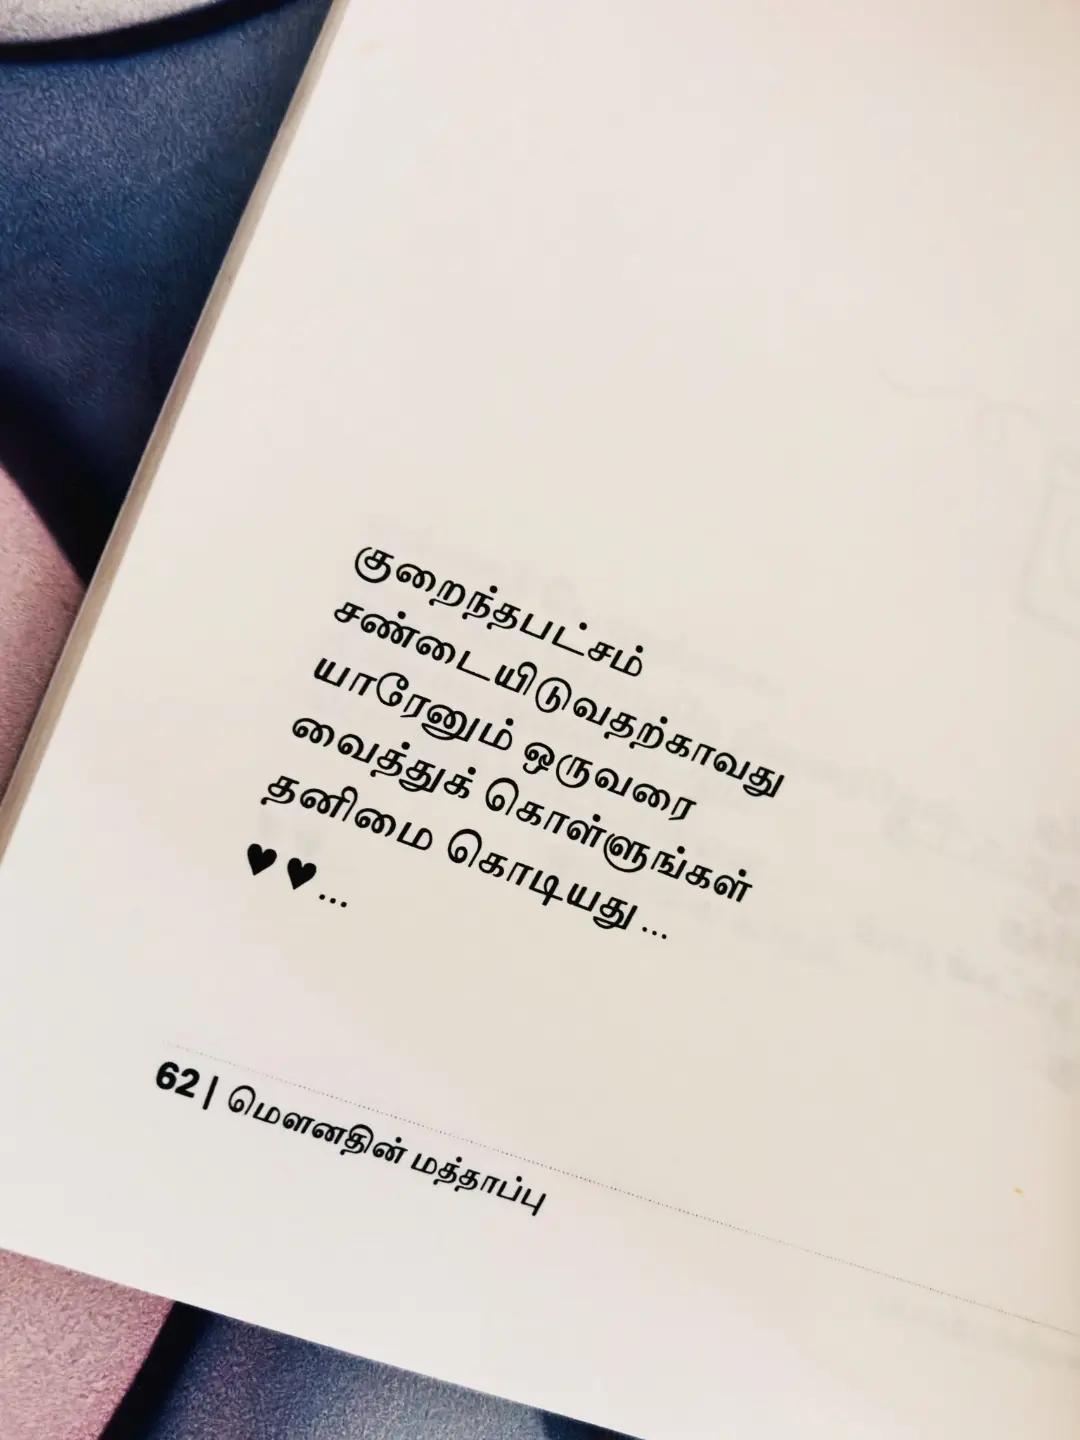 குறைந்தபட்சம்
சண்டையிடுவதற்காவது
யாரேனும் ஒருவரை
வைத்துக் கொள்ளுங்கள்
தனிமை கொடியது...
♥♥...
62| மௌனதின் மத்தாப்பு